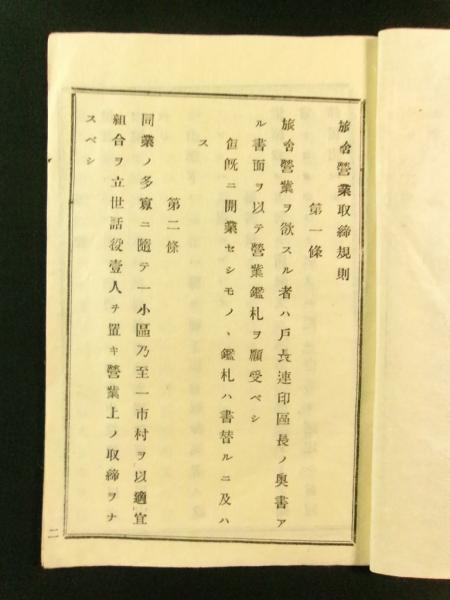 旅舎營業取締規則
第一條
旅舎營業ヲ欲スル者ハ戸長連印區長ノ奧書ア
ル書面ヲ以テ營業鑑札ヲ願受ベシ
但既ニ開業セシモノヽ鑑札ハ書替ルニ及ハ
ス
第二條
同業ノ多寡ニ隨テ一小區乃至一市村ヲ以適宜
組合ヲ立世話役壹人ヲ置キ營業上ノ取締ヲナ
スベシ
二